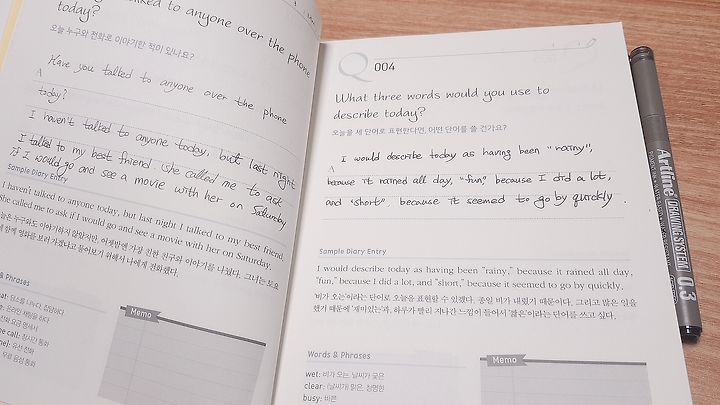 talked to anyone over the phone
today?
오늘 누구와 전화로 이야기한 적이 있나요?
Have you talked to anyone over the phone
today?
I haven't talked to anyone today, but last night
I talked to my best friend. She called me to ask
if I would go and see a movie with her on Saturday
Sample Diary Entry
I haven't talked to anyone today, but last night I talked to my best friend.
She called me to ask if I would go and see a movie with her on Saturday.
& Phrases
Memo
Q 004
What three words would you use to
describe today?
오늘을 세 단어로 표현한다면, 어떤 단어를 쓸 건가요?
I would describe today as having been "rainy",
because it rained all day, "fun," because I did a lot,
and "short", because it seemed to go by quickly.
Sample Diary Entry
I would describe today as having been "rainy," because it rained all day,
"fun," because I did a lot, and "short," because it seemed to go by quickly.
비가 오는'이라는 단어로 오늘을 표현할 수 있겠다. 종일 비가 내렸기 때문이다. 그리고 많은 일을
했기 때문에 '재미있는'과, 하루가 빨리 지나간 느낌이 들어서 '짧은'이라는 단어를 쓰고 싶다.
Words & Phrases
wet: 비가 오는, 날씨가 궂은
clear: (날씨가) 맑은, 청명한
busy: 바쁜
Memo
Artline DRAWING SYSTEM 0.3